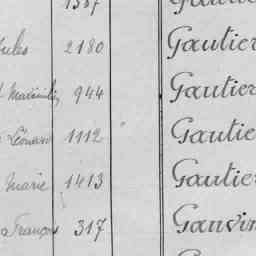 1337
Jules 2180 Gautier
Maximilien 944 Gautier
Léonard 1112 Gautie
Marie 1413 Gautier
François 317 Gauvin